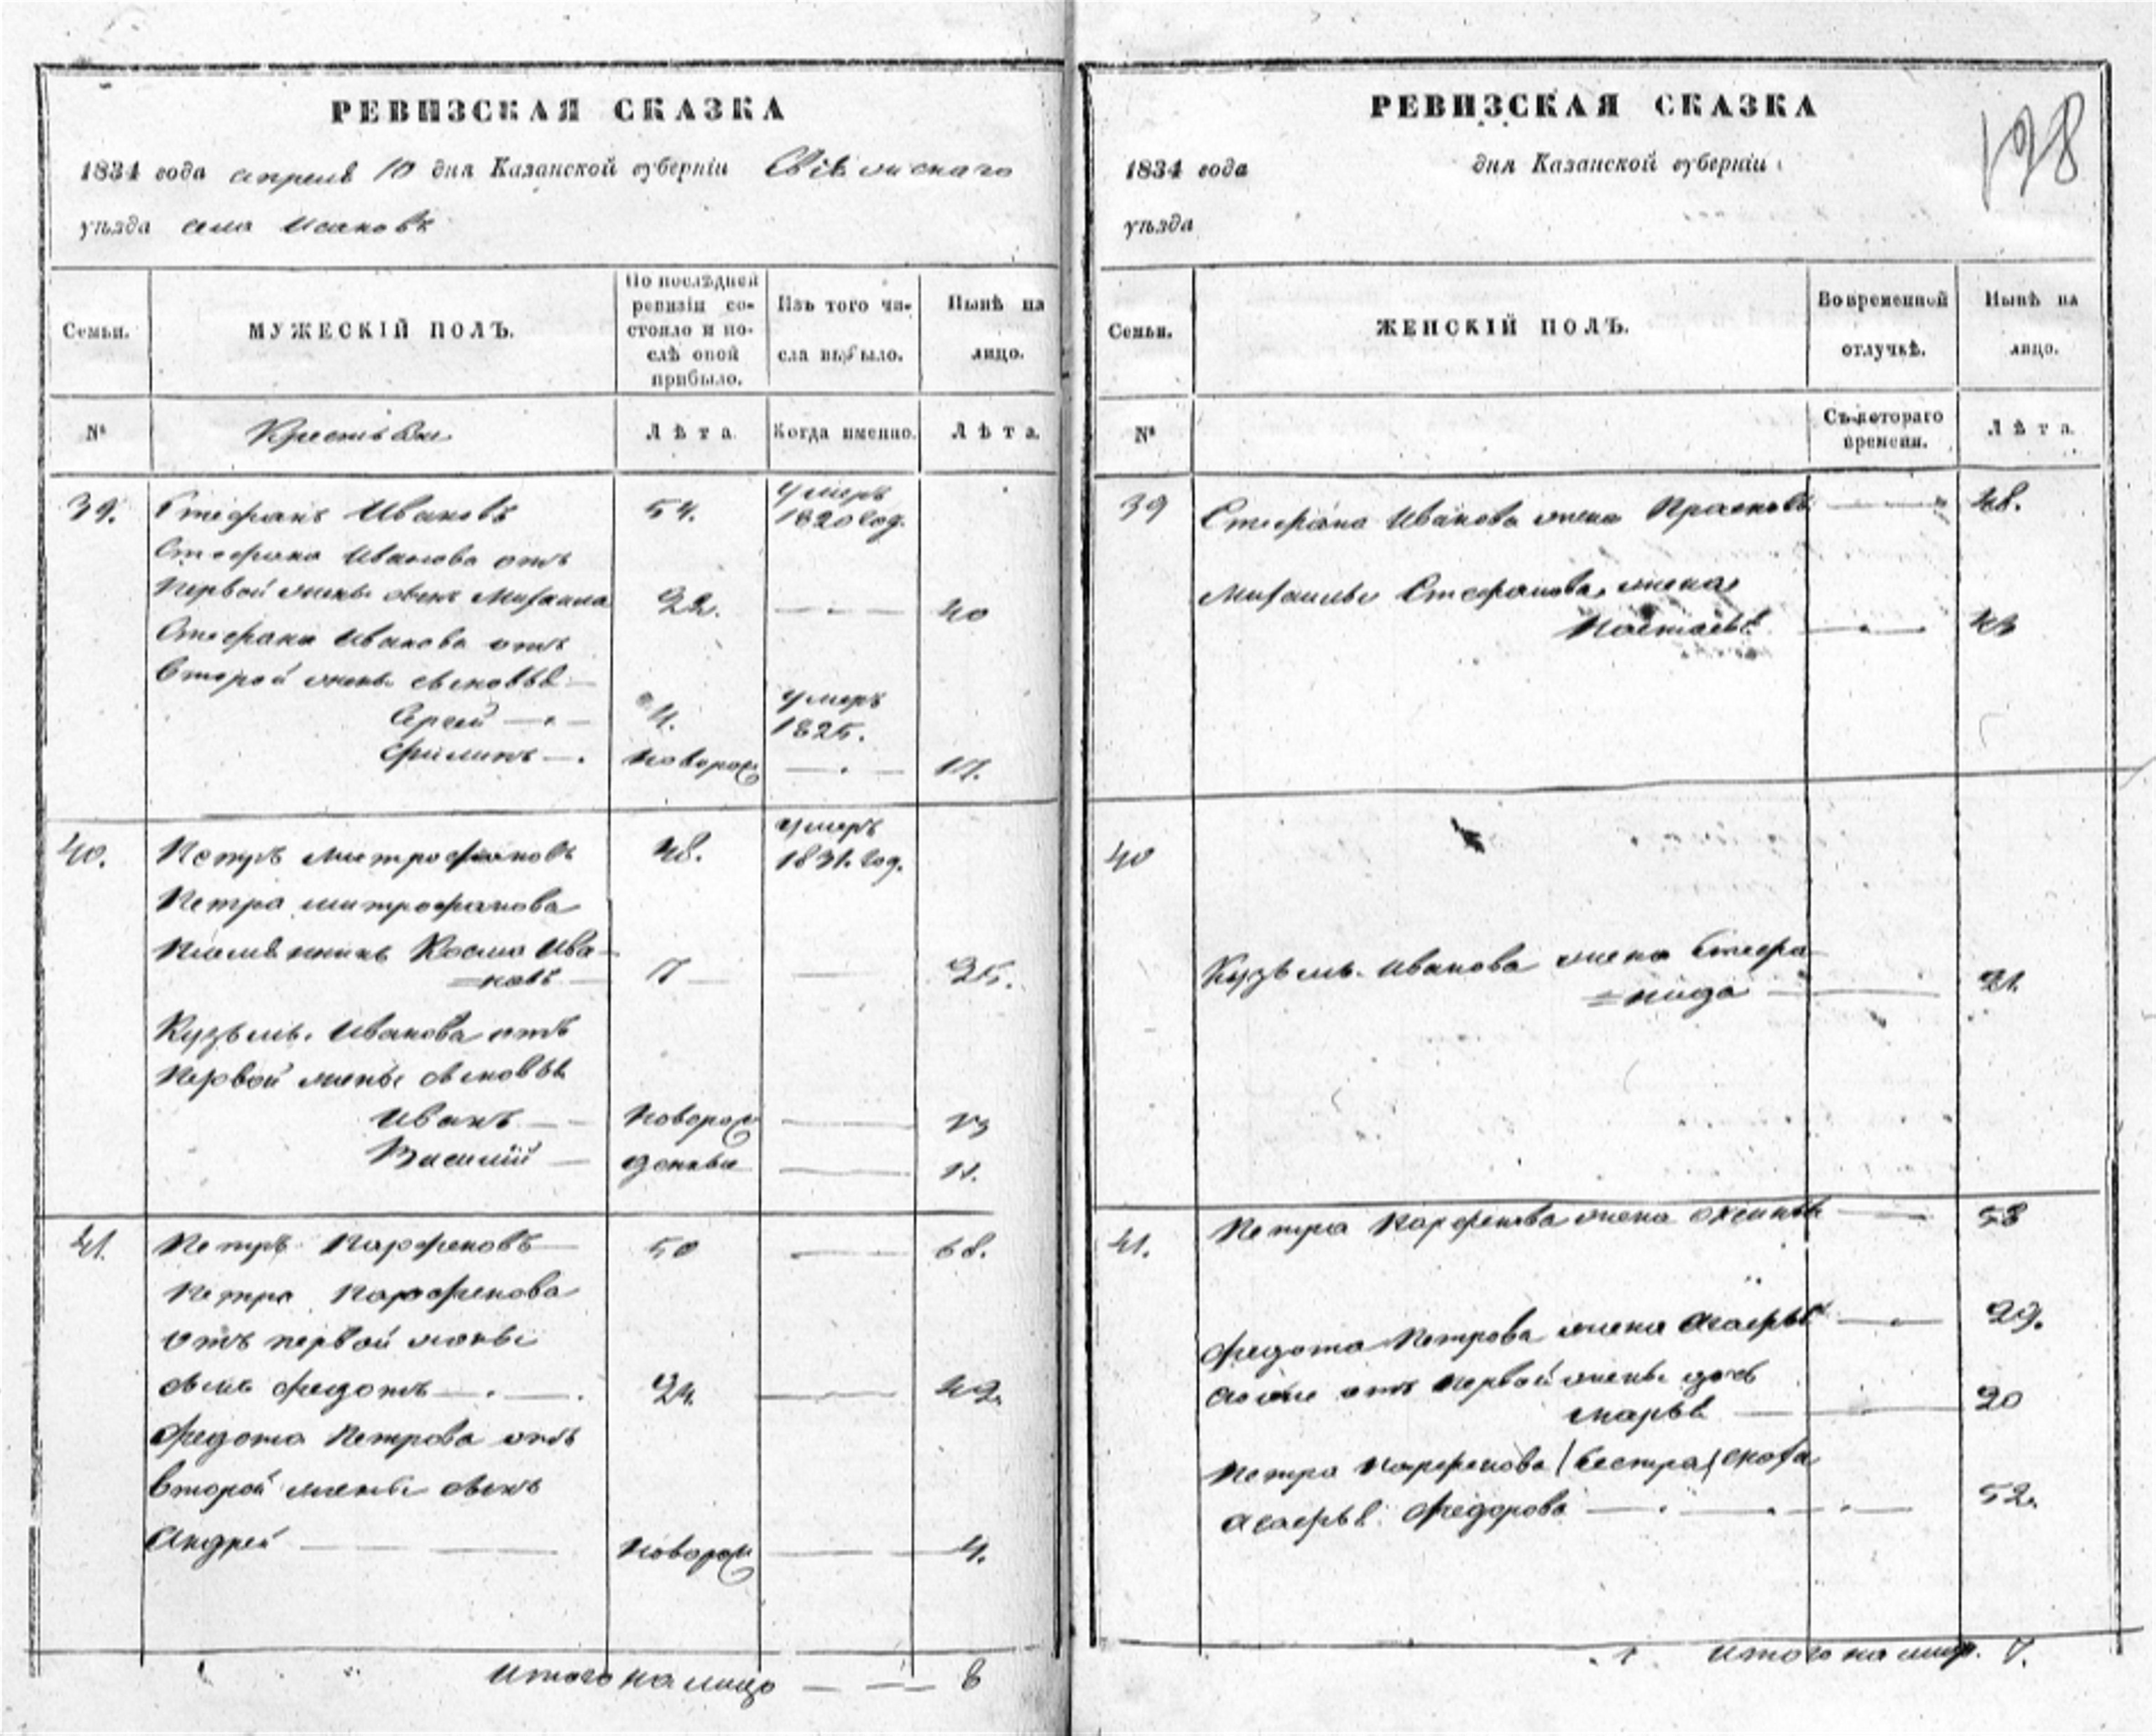 РЕВИЗСКАЯ СКАЗКА
1834 года апреля 10 дня Казанской губерніи
уѣзда села
Семьи.
МУЖЕСКІЙ ПОЛЪ.
По послѣдней ревизіи со-
стояло и по-
слѣ оной
прибыло.
Изъ того чи-
сла выбыло.
Нынѣ на
лицо.
№
Крестьяне
Лѣта.
Когда именно.
Лѣта.
39.
Стефанъ Ивановъ
54.
умеръ
1820 год.
Стефана Иванова отъ
первой жены сынъ Михаила
22.
40
Стефана Иванова отъ
второй жены сыновья
Сергей
4.
умеръ
1825.
Филипъ
новорож
17.
40.
Петръ Митрофановъ
48.
умеръ
1831. год.
Петра Митрофанова
племянникъ Косма Ива-
=новъ
17
35.
Кузьмы Иванова отъ
первой жены сыновья
Иванъ
новорож
13
Василій
денные
11.
41.
Петръ Парфеновъ
50
68.
Петра Парфенова
отъ первой жены
сынъ Федотъ
24.
42.
Федота Петрова отъ
второй жены сынъ
Андрей
новорож
4.
Итого на лицо
8
РЕВИЗСКАЯ СКАЗКА
138
1834 года
дня Казанской губерніи
уѣзда
Семьи.
ЖЕНСКІЙ ПОЛЪ.
Во временной
отлучкѣ.
Нынѣ на
лицо.
№
Съ котораго
времени.
Лѣта.
39
Стефана Иванова жена Прасковья
48.
Михаилы Стефанова жена
Настасья
43
40
Кузьмы Иванова жена Стефа-
=нида
31.
41.
Петра Парфенова жена
58
Федота Петрова жена Агафья
39.
его же отъ первой жены дочь
Марья
20
Петра Парфенова (сестра) сноха
Агафья Федорова
52.
Итого на лицо 7.